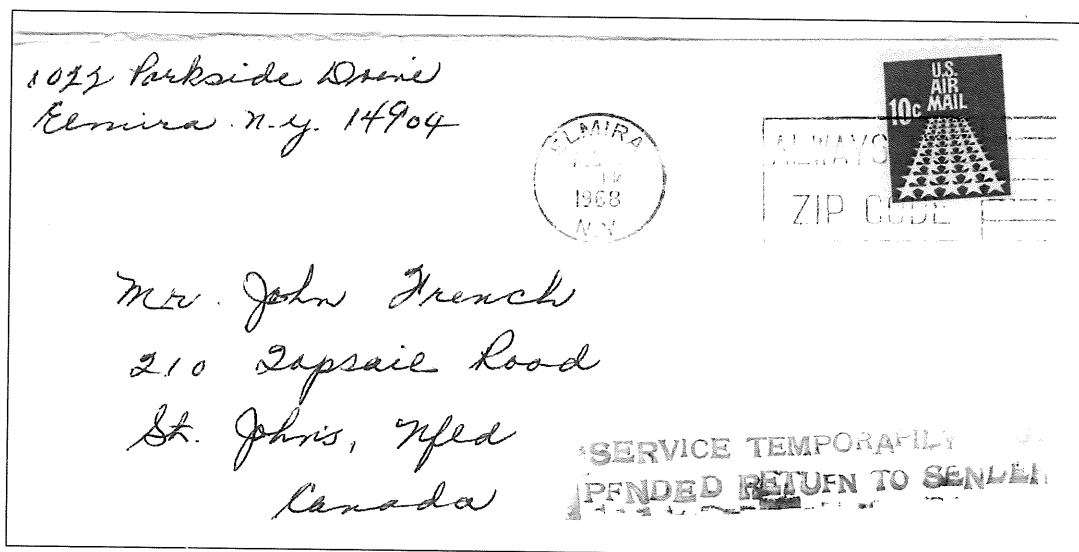 1022 Parkside Drive
Elmira N.Y. 14904
U.S.
AIR
MAIL
10c
ELMIRA
1968
N.Y.
ALWAYS
ZIP CODE
Mr. John French
210 Topsail Road
St. John's, Nfld
Canada
SERVICE TEMPORARILY
PENDED RETURN TO SENDER